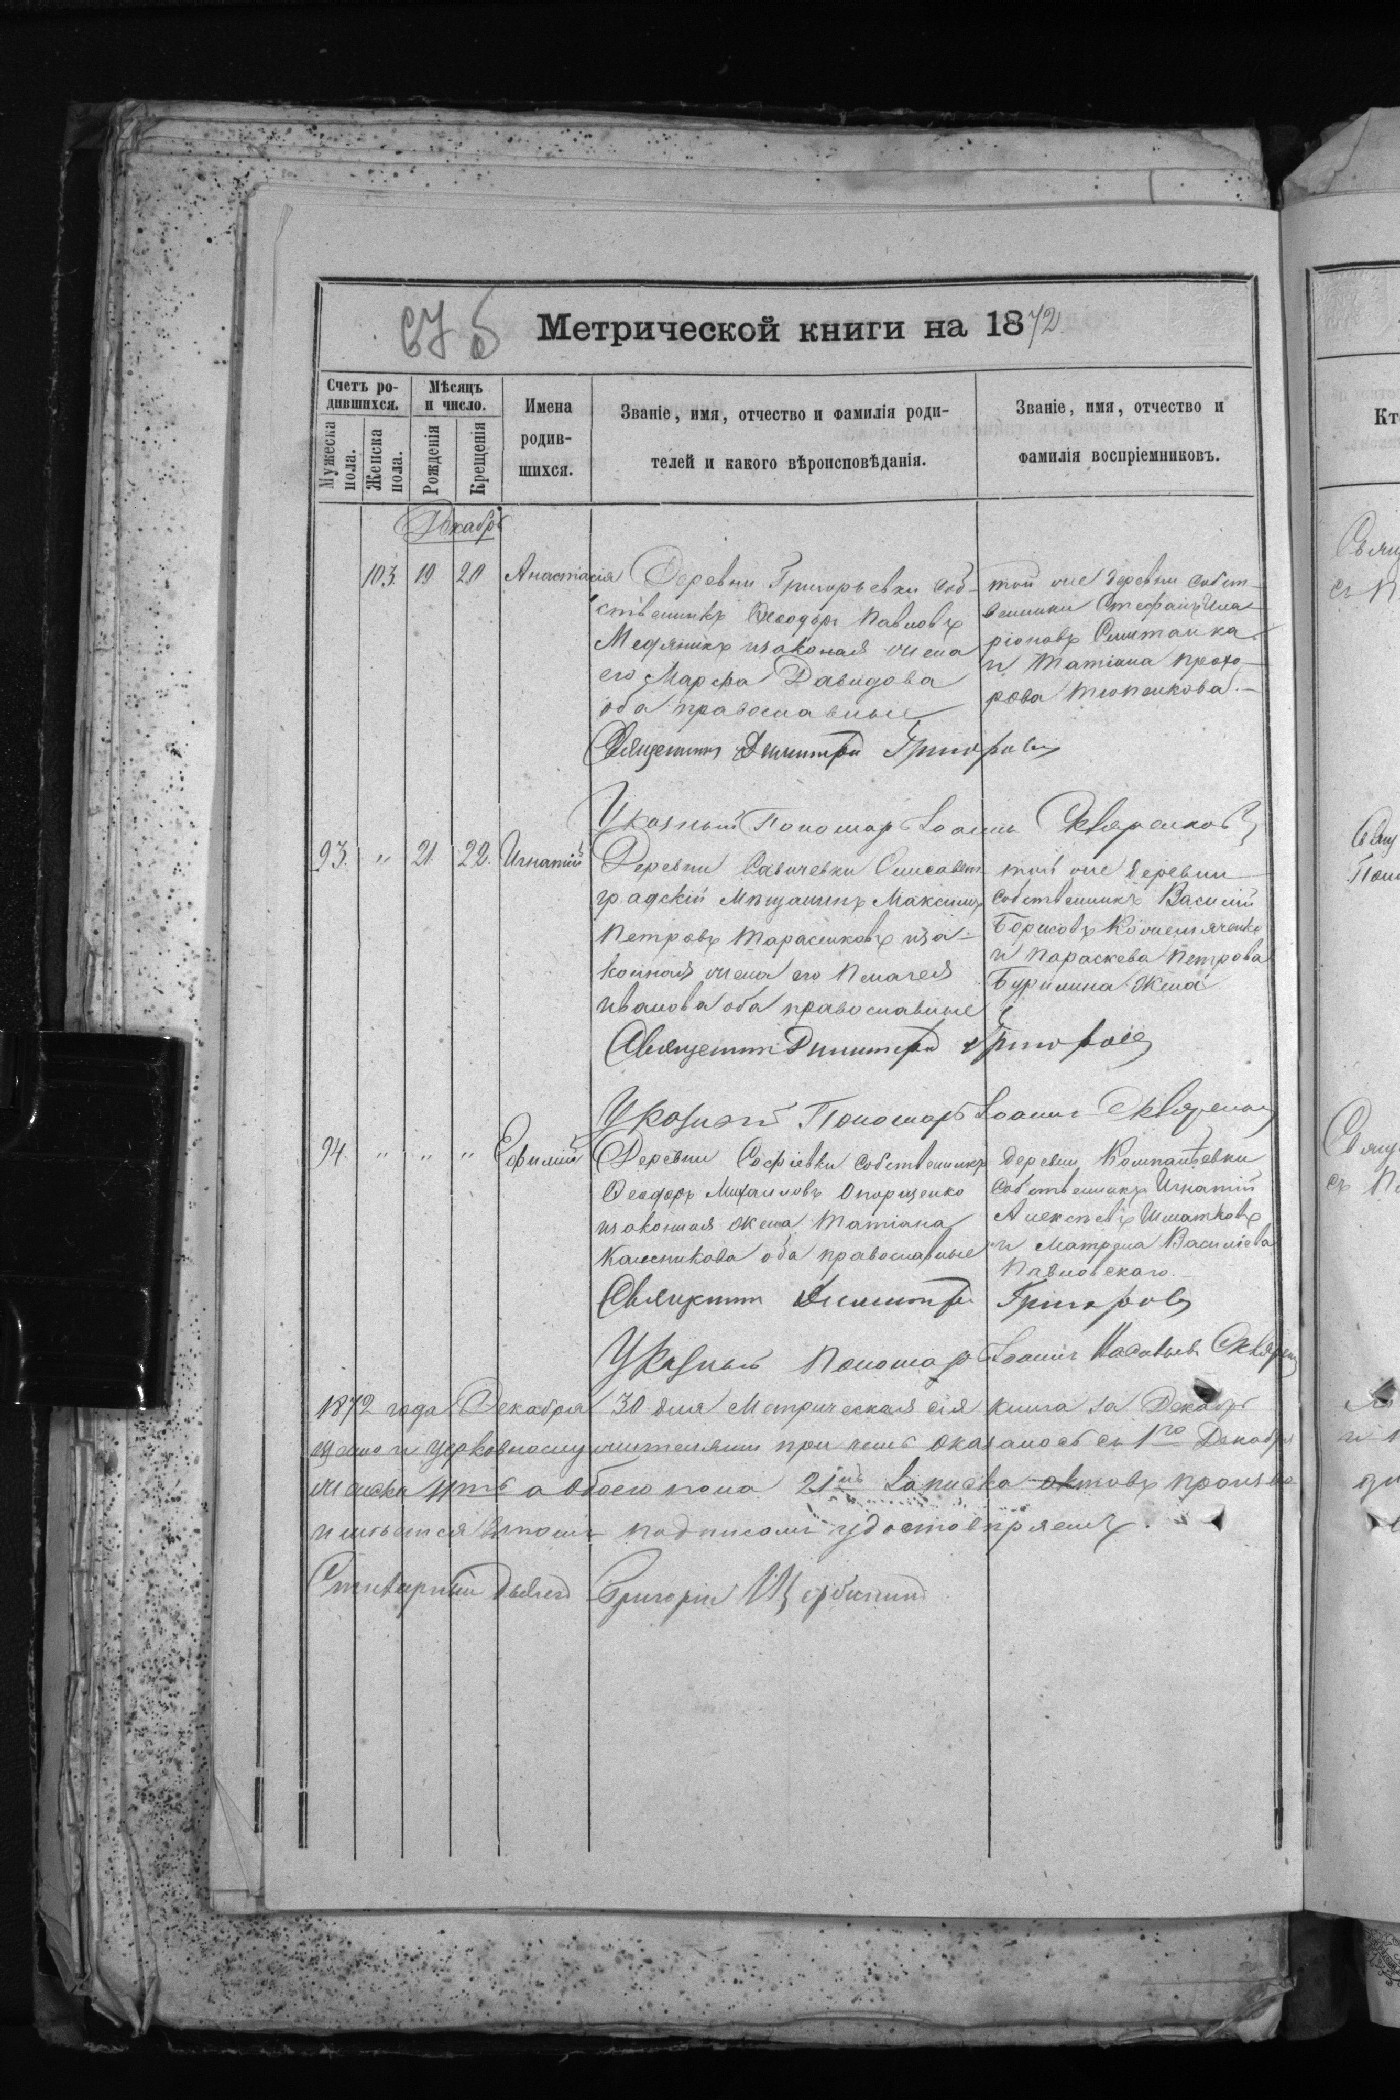 Метрической книги на 1872
Счетъ ро-
дившихся.
Мужеска пола.
Женска пола.
Мѣсяцъ
и число.
Рожденія
Крещенія
Имена
родив-
шихся.
Званіе, имя, отчество и фамилія роди-
телей и какого вѣроисповѣданія.
Званіе, имя, отчество и
фамилія воспріемниковъ.
Декабрь
103 19 20 Анастасія
Деревни Григорьевки соб-
ственникъ Ѳеодоръ Павловъ
Медяникъ изаконая жена
его Марфа Давидова
оба православные
той же деревни собст-
венники Стефанъ Ила-
ріоновъ
и Татіана Прохо-
рова
Священникъ Димитрій Григоровичъ
Указный Пономарь Іоаннъ
93 " 21 22 Игнатій
Деревни Савичевки Елисавет-
градскій Мѣщанинъ Максимъ
Петровъ Тарасенковъ иза-
конная жена его Пелагея
Иванова оба православные
той же деревни
собственникъ Василій
Борисовъ
и Параскева Петрова
Бурилина жена
Священникъ Димитрій Григоровичъ
Указный Пономарь Іоаннъ
94 " " " Ефимій
Деревни Софіевки собственникъ
Ѳеодоръ Михаиловъ
изаконная жена Татіана
оба православные
Деревни Компанѣевки
Собственникъ Игнатій
Алексѣевъ Шматковъ
и Матрона Василіева
Павловскаго
Священникъ Димитрій Григоровичъ
Указный Пономарь Іоаннъ
1872 года Декабря 30 дня Метрическая сія книга за Декабрь
при чемъ оказалось съ 1го Декабря
а обоего пола 21нъ Записка актовъ
подписомъ удостовѣряемъ.
Григорій Щербинин